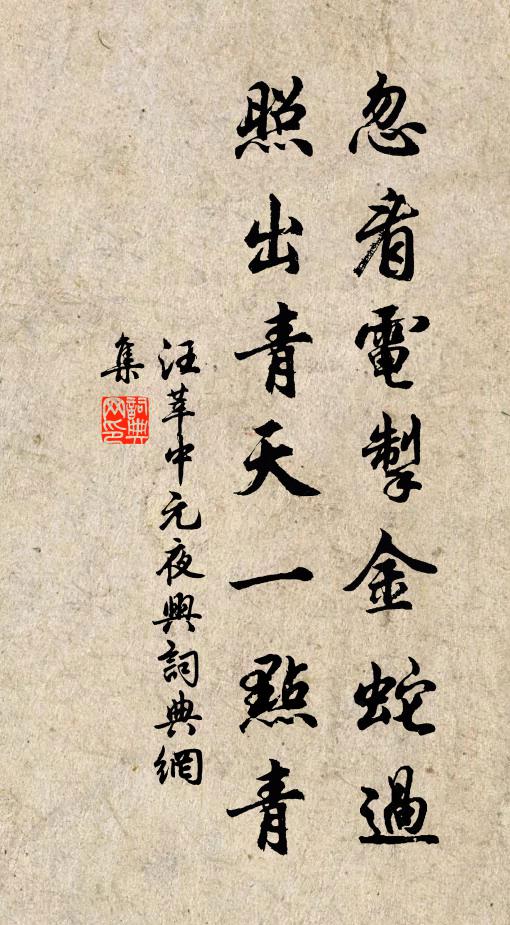 忽看電掣金蛇過
照出青天一點青
汪莘中元夜興詞典網
集
詞典
网印